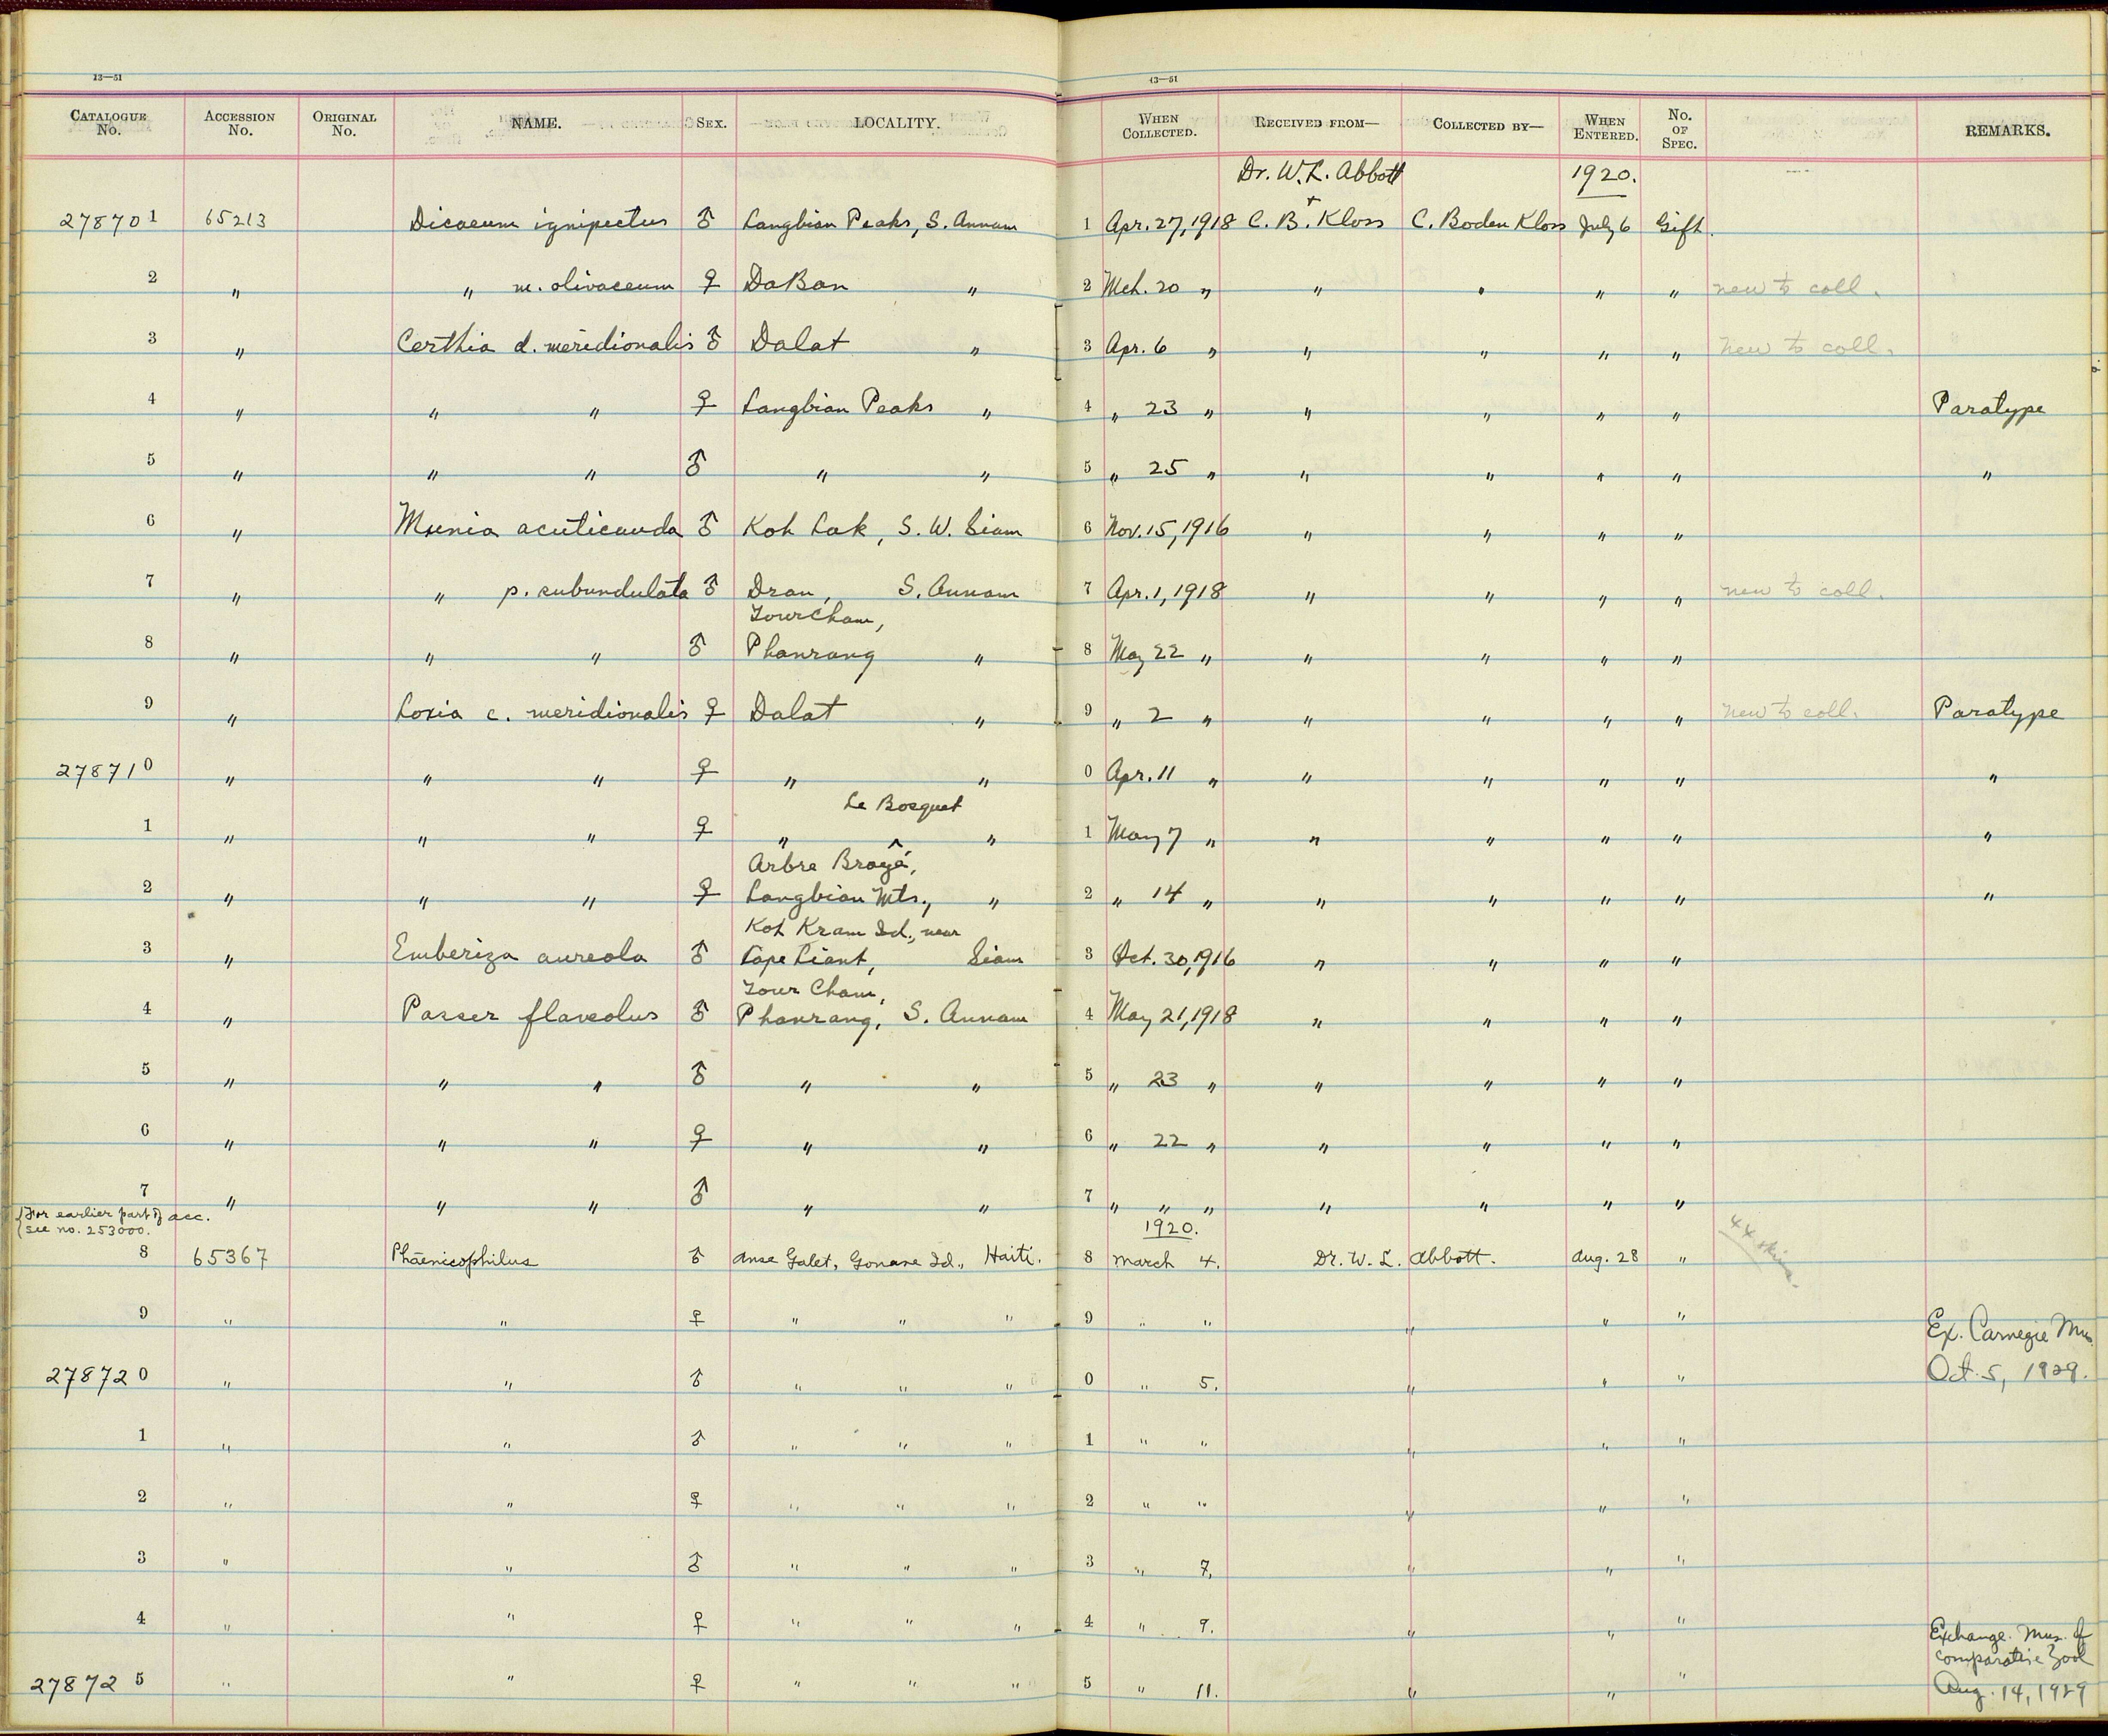 13—51 13—51
CATALOGUE No. ACCESSION No. ORIGINAL No. NAME. SEX. LOCALITY. WHEN COLLECTED. RECEIVED FROM— COLLECTED BY— WHEN ENTERED. No. OF SPEC. REMARKS.
Dr. W. L. Abbott 1920.
+
278701 65213 Dicaeum ignipectus ♂ Langbian Peaks, S. Annam 1 Apr. 27, 1918 C. B. Kloss C. Boden Kloss July 6 Gift.
2 " " m. olivaceum ♀ DaBan " 2 Mch. 20 " " " " " new to coll.
3 " Certhia d. meridionalis ♂ Dalat " 3 Apr. 6 " " " " " new to coll.
4 " " " ♀ Langbian Peaks " 4 " 23 " " " " " Paratype
5 " " " ♂ " " 5 " 25 " " " " " "
6 " Munia acuticauda ♂ Koh Lak, S. W. Siam 6 Nov. 15, 1916 " " " "
7 " " p. subundulata ♂ Dran, S. Annam 7 Apr. 1, 1918 " " " " new to coll.
Tour Cham,
8 " " " ♂ Phanrang " 8 May 22 " " " " "
9 " Loxia c. meridionalis ♀ Dalat " 9 " 2 " " " " " new to coll. Paratype
278710 " " " ♀ " " 0 Apr. 11 " " " " " "
Le Bosquet
1 " " " ♀ " ^ " 1 May 7 " " " " " "
Arbre Broyé,
2 " " " ♀ Langbian Mts., " 2 " 14 " " " " " "
Koh Kram Id., near
3 " Emberiza aureola ♂ Cape Liant, Siam 3 Oct. 30, 1916 " " " "
Tour Cham,
4 " Passer flaveolus ♂ Phanrang, S. Annam 4 May 21, 1918 " " " "
5 " " " ♂ " " 5 " 23 " " " " "
6 " " " ♀ " " 6 " 22 " " " " "
7 " " " ♂ " " 7 " " " " " " "
{For earlier part of acc.
see no. 253000.
1920.
8 65367 Phaenicophilus ♂ Anse Galet, Gonave Id., Haiti. 8 March 4. Dr. W. L. Abbott. Aug. 28 " 44 skins.
9 " " ♀ " " " 9 " " " " "
Ex. Carnegie Mus.
278720 " " ♂ " " " 0 " 5. " " " Oct. 5, 1929.
1 " " ♂ " " " 1 " " " " "
2 " " ♀ " " " 2 " " " " "
3 " " ♂ " " " 3 " 7. " " "
4 " " ♀ " " " 4 " 9. " " "
Exchange. Mus. of
comparative Zool
278725 " " ♀ " " " 5 " 11. " " " Aug. 14, 1929